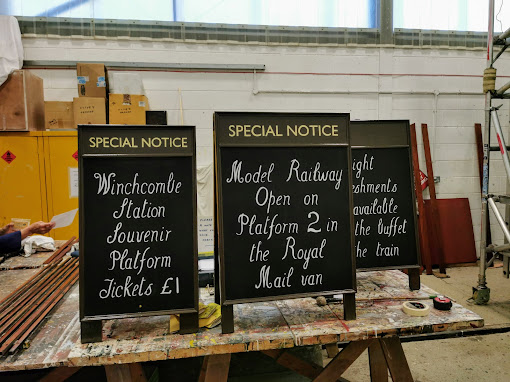 SPECIAL NOTICE
Winchcombe
Station
Souvenir
Platform
Tickets £1
SPECIAL NOTICE
Model Railway
Open on
Platform 2 in
the Royal
Mail van
ight
eshments
available
the buffet
the train